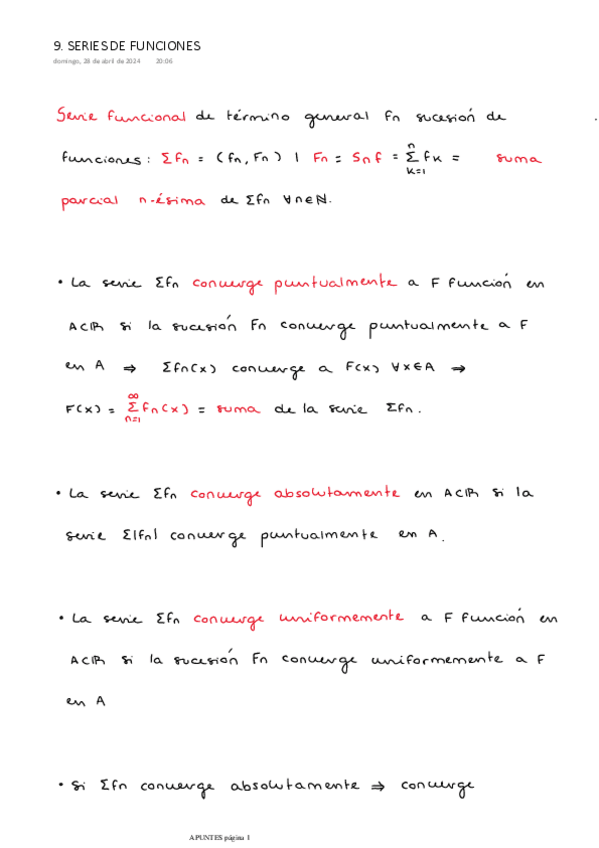 9. SERIES DE FUNCIONES
domingo, 28 de abril de 2024 20:06
Serie funcional de término general fn sucesión de
funciones: Σfn = (fn, Fn) | Fn = Snf = Σ_{k=1}^{n} fk = suma
parcial n-ésima de Σfn ∀n∈ℕ.
• La serie Σfn converge puntualmente a F función en
A⊂ℝ si la sucesión Fn converge puntualmente a F
en A ⇒ Σfn(x) converge a F(x) ∀x∈A ⇒
F(x) = Σ_{n=1}^{∞} fn(x) = suma de la serie Σfn.
• La serie Σfn converge absolutamente en A⊂ℝ si la
serie Σ|fn| converge puntualmente en A.
• La serie Σfn converge uniformemente a F función en
A⊂ℝ si la sucesión Fn converge uniformemente a F
en A
• Si Σfn converge absolutamente ⇒ converge
APUNTES página 1